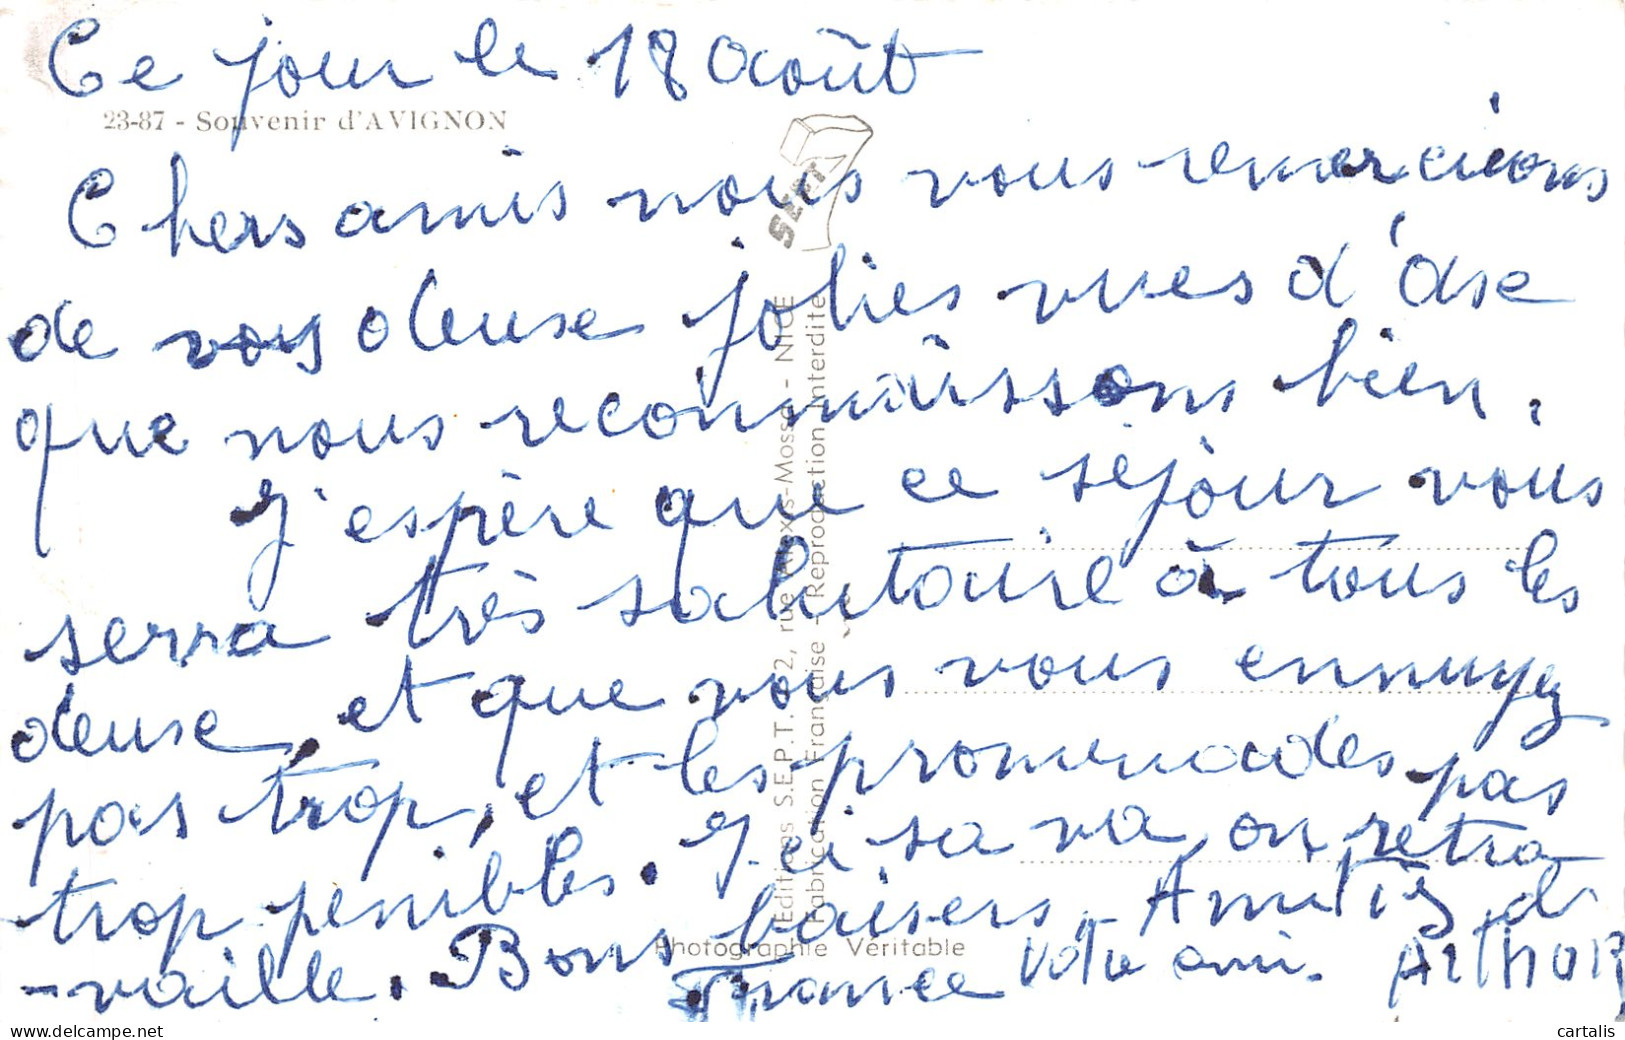 Ce jour le 18 Août
23-87 - Souvenir d'AVIGNON
Chers amis nous vous remercions
de vos deuse jolies vues d'dse
que nous reconnaissons bien.
J'espère que ce séjour vous
serra très salutaire à tous les
deuse, et que vous vous ennuyez
pas trop, et les promenades pas
trop penibles. Ici sa va, on retra
-vaille. Bons baisers. Amitiés d
France Votre ami. ARTHUR
SEPT
Editions S.E.P.T. 2, rue Alexis-Mossa - NICE
Fabrication Française - Reproduction Interdite
Photographie Véritable
cartalis